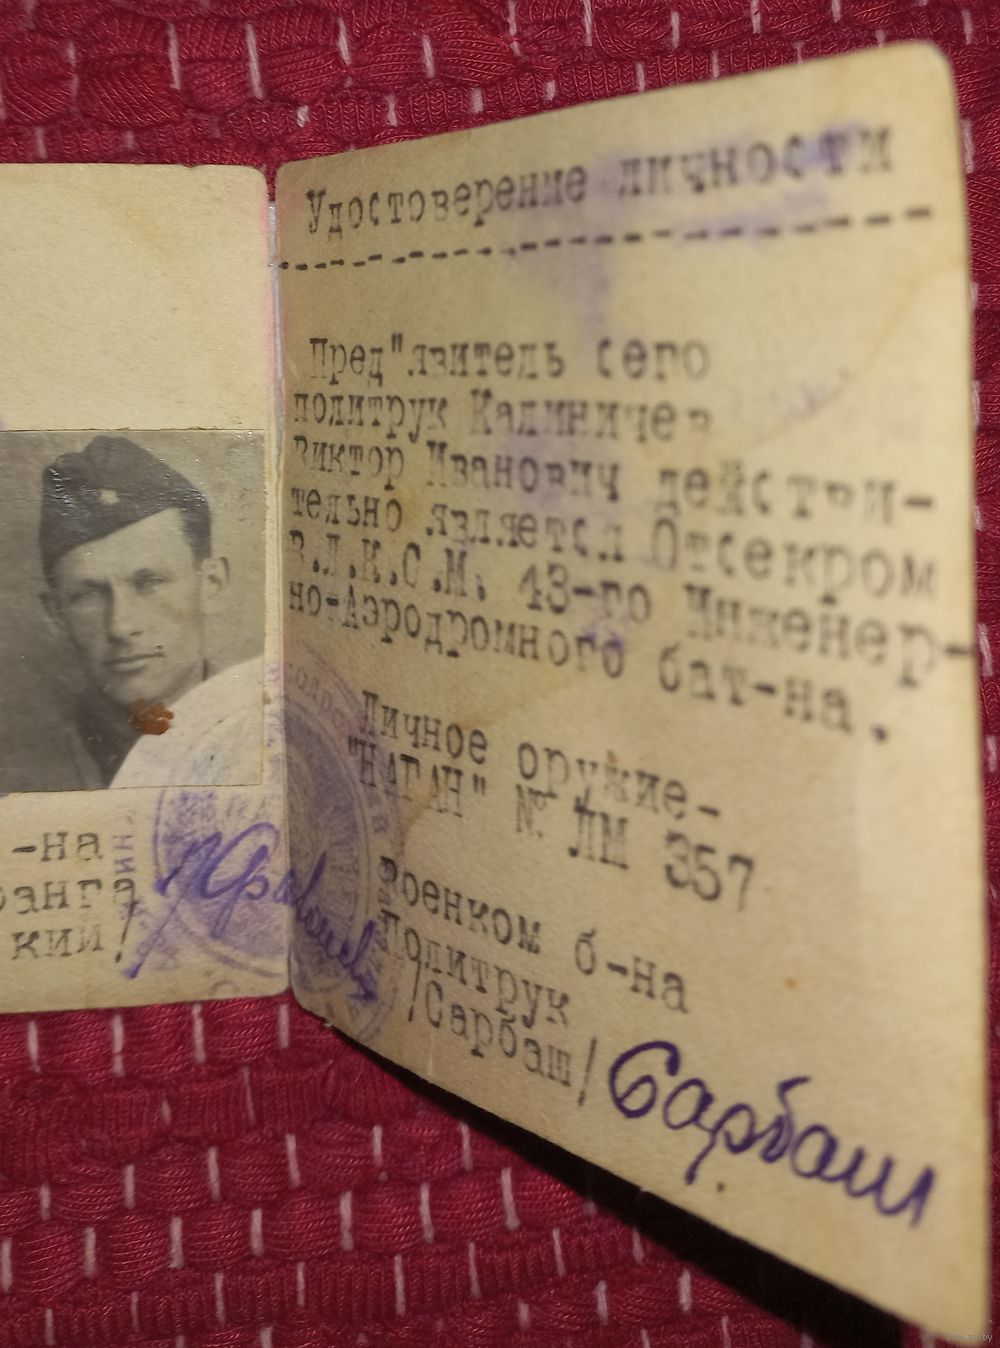 -на
ранга
кий/
Удостоверение личности
Пред"явитель сего
политрук Калиничев
Виктор Иванович действи-
тельно является Отсекром
В.Л.К.С.М. 43-го Инженер-
но-Аэродромного бат-на.
Личное оружие-
"НАГАН" № ЛМ 357
Военком б-на
Политрук
/Сарбаш/ Сарбаш